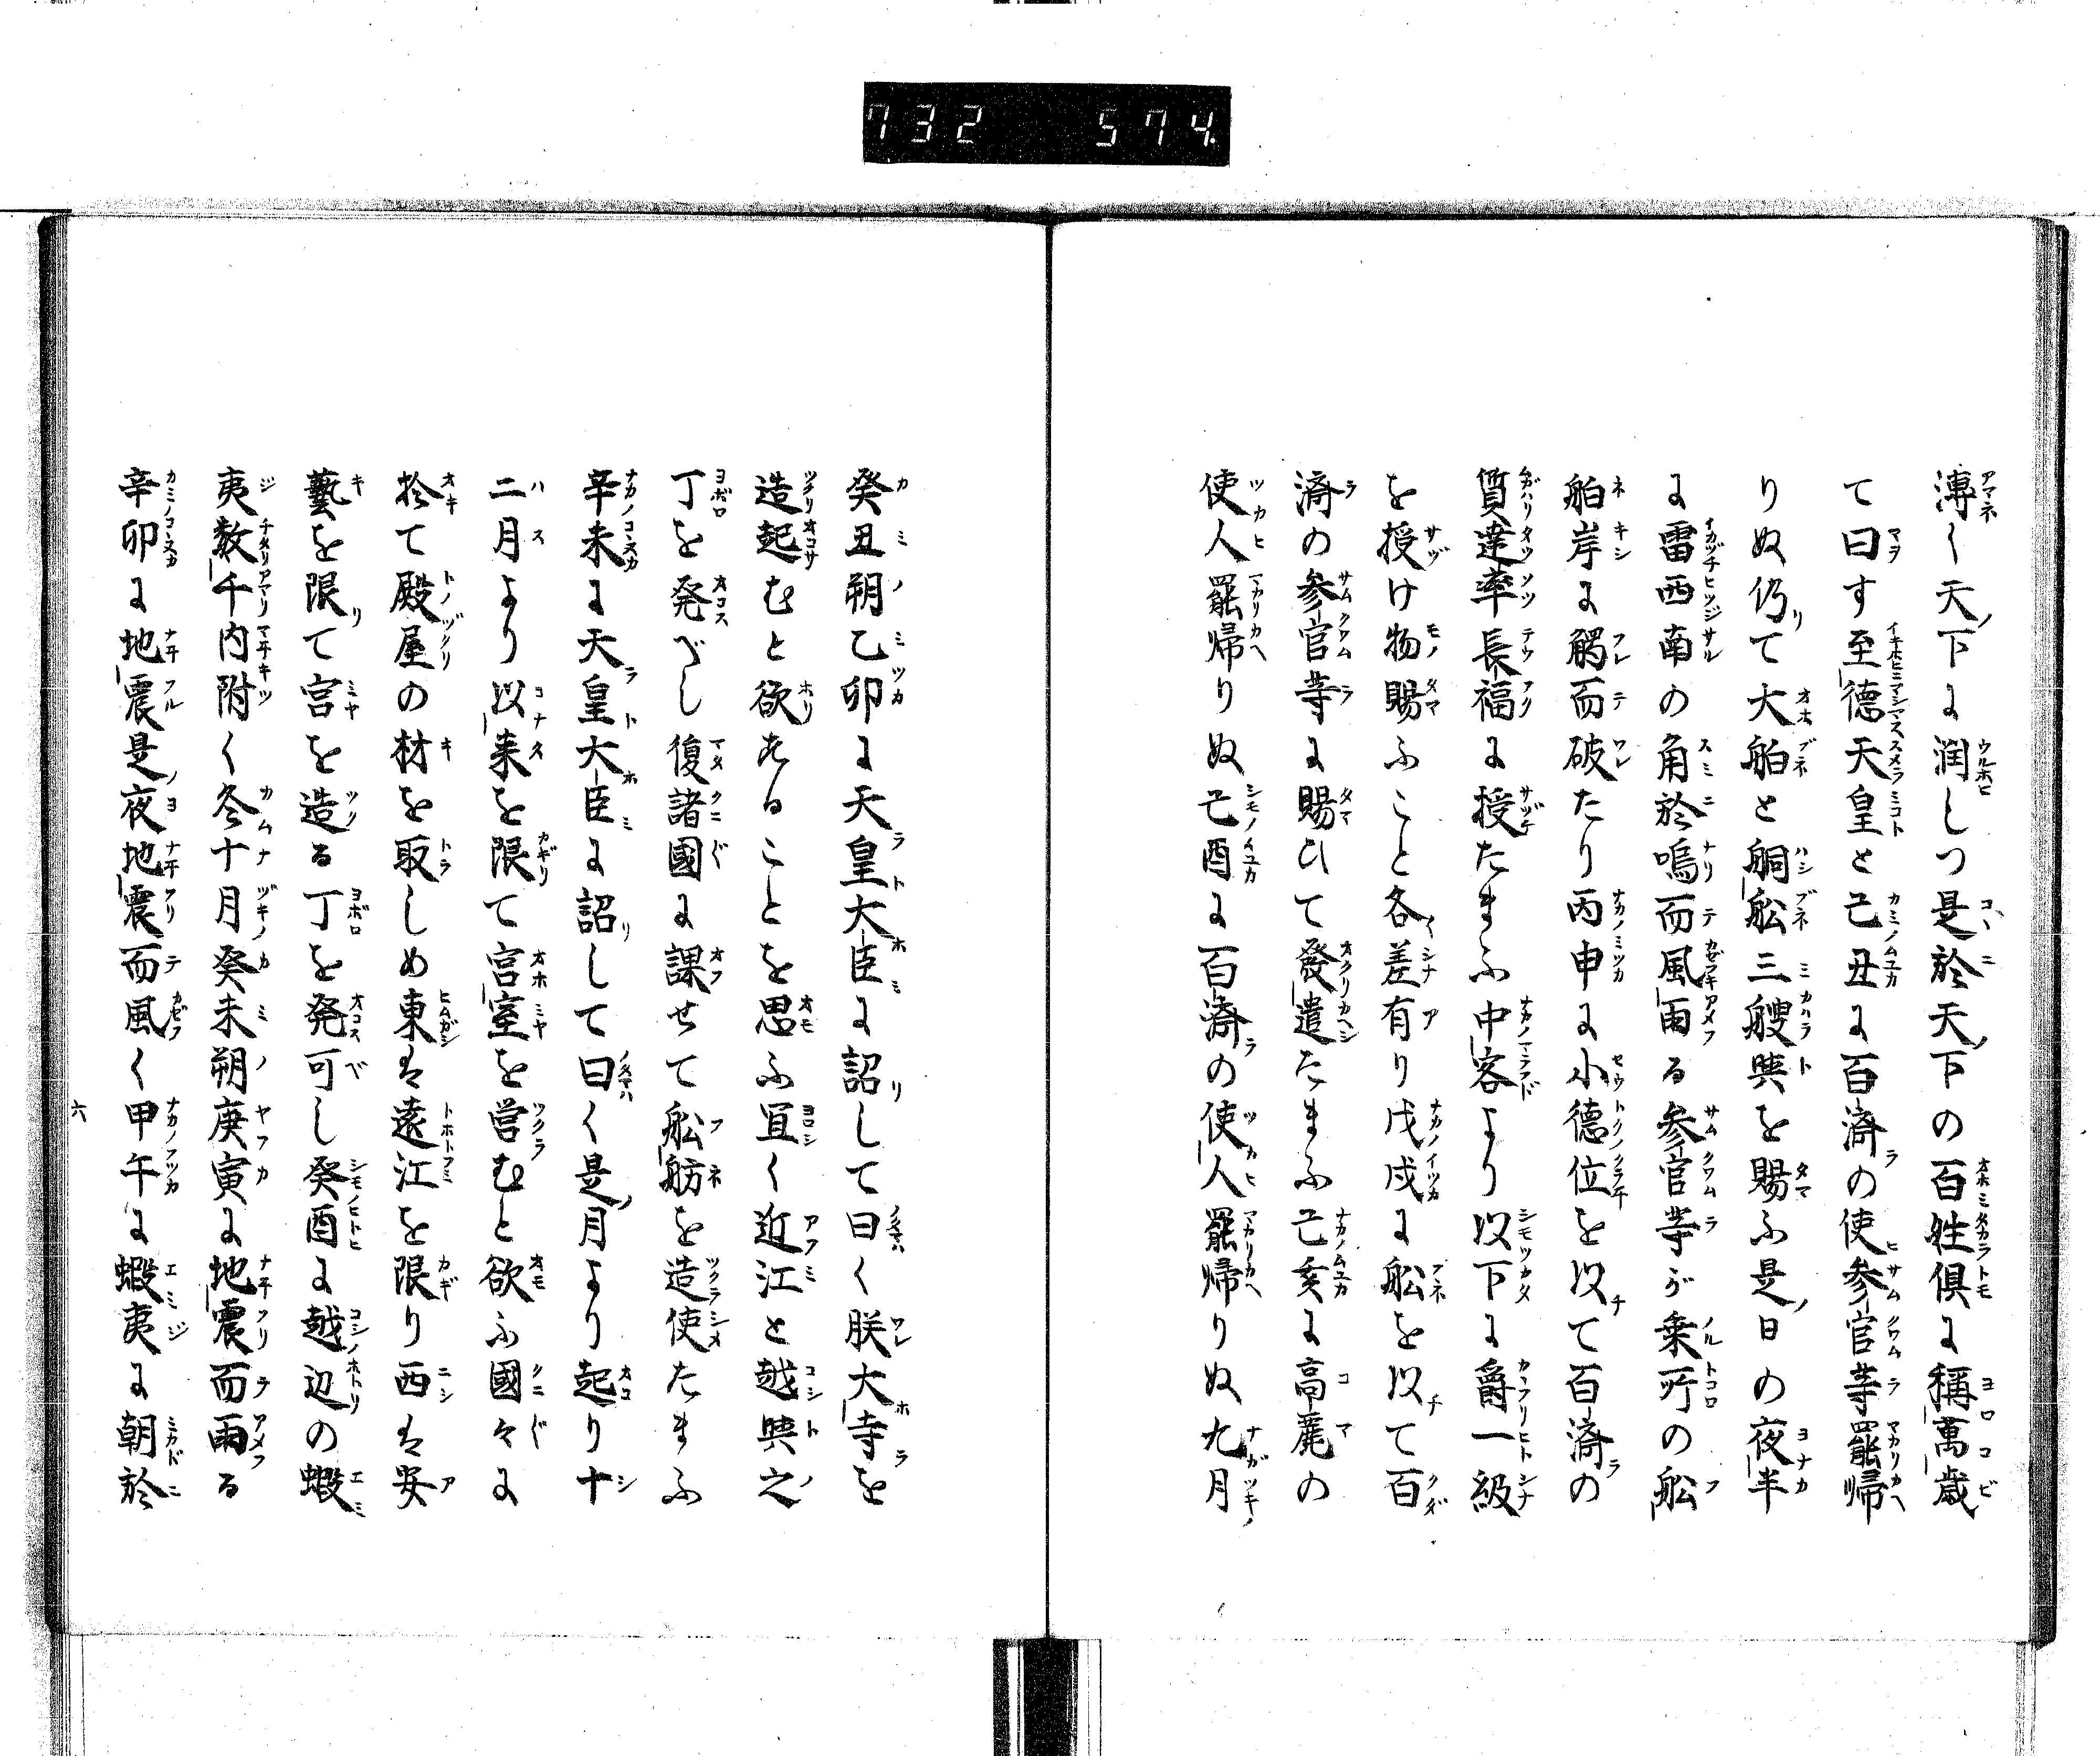 732 574
溥く天下に潤しつ是於天下の百姓倶に稱萬歳
て曰す至德天皇と己丑に百濟の使参官等罷帰
りぬ仍て大舶と舸舩三艘與を賜ふ是日の夜半
に雷西南の角於鳴而風雨る参官等が乗所の舩
舶岸に觸而破たり丙申に小德位を以て百濟の
質達率長福に授たまふ中客より以下に爵一級
を授け物賜ふこと各差有り戊戌に舩を以て百
濟の参官等に賜ひて發遣たまふ己亥に高麗の
使人罷帰りぬ己酉に百濟の使人罷帰りぬ九月
癸丑朔乙卯に天皇大臣に詔して曰く朕大寺を
造起むと欲あることを思ふ宜く近江と越與之
丁を発べし復諸國に課せて舩舫を造使たまふ
辛未に天皇大臣に詔して曰く是月より起り十
二月より以来を限て宮室を営むと欲ふ國々に
於て殿屋の材を取しめ東は遠江を限り西は安
藝を限て宮を造る丁を発可し癸酉に越辺の蝦
夷数千内附く冬十月癸未朔庚寅に地震而雨る
辛卯に地震是夜地震而風く甲午に蝦夷に朝於
六